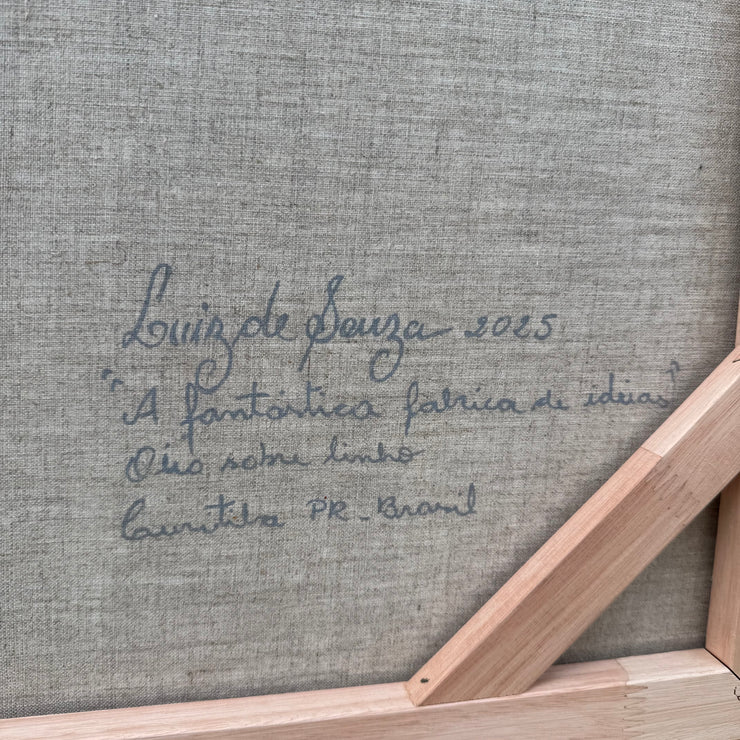 Luiz de Souza 2025
"A fantástica fabrica de ideias"
Oleo sobre linho
Curitiba PR - Brasil